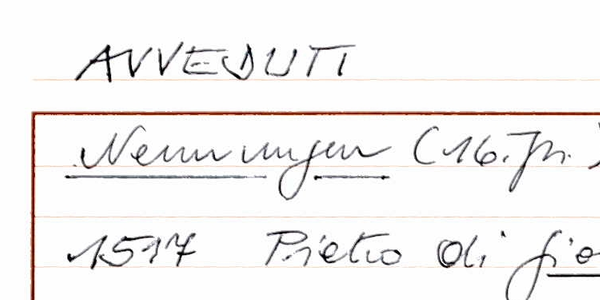 AVVEDUTI
Nennungen (16. Jh.)
1517 Pietro di Gio